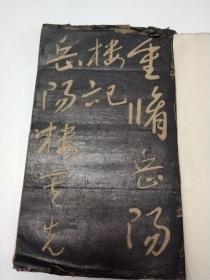 重脩岳陽
樓記
岳陽樓其先